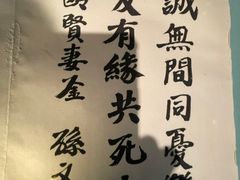 誠無間同憂
友有緣共死
賢妻鉴 孫文